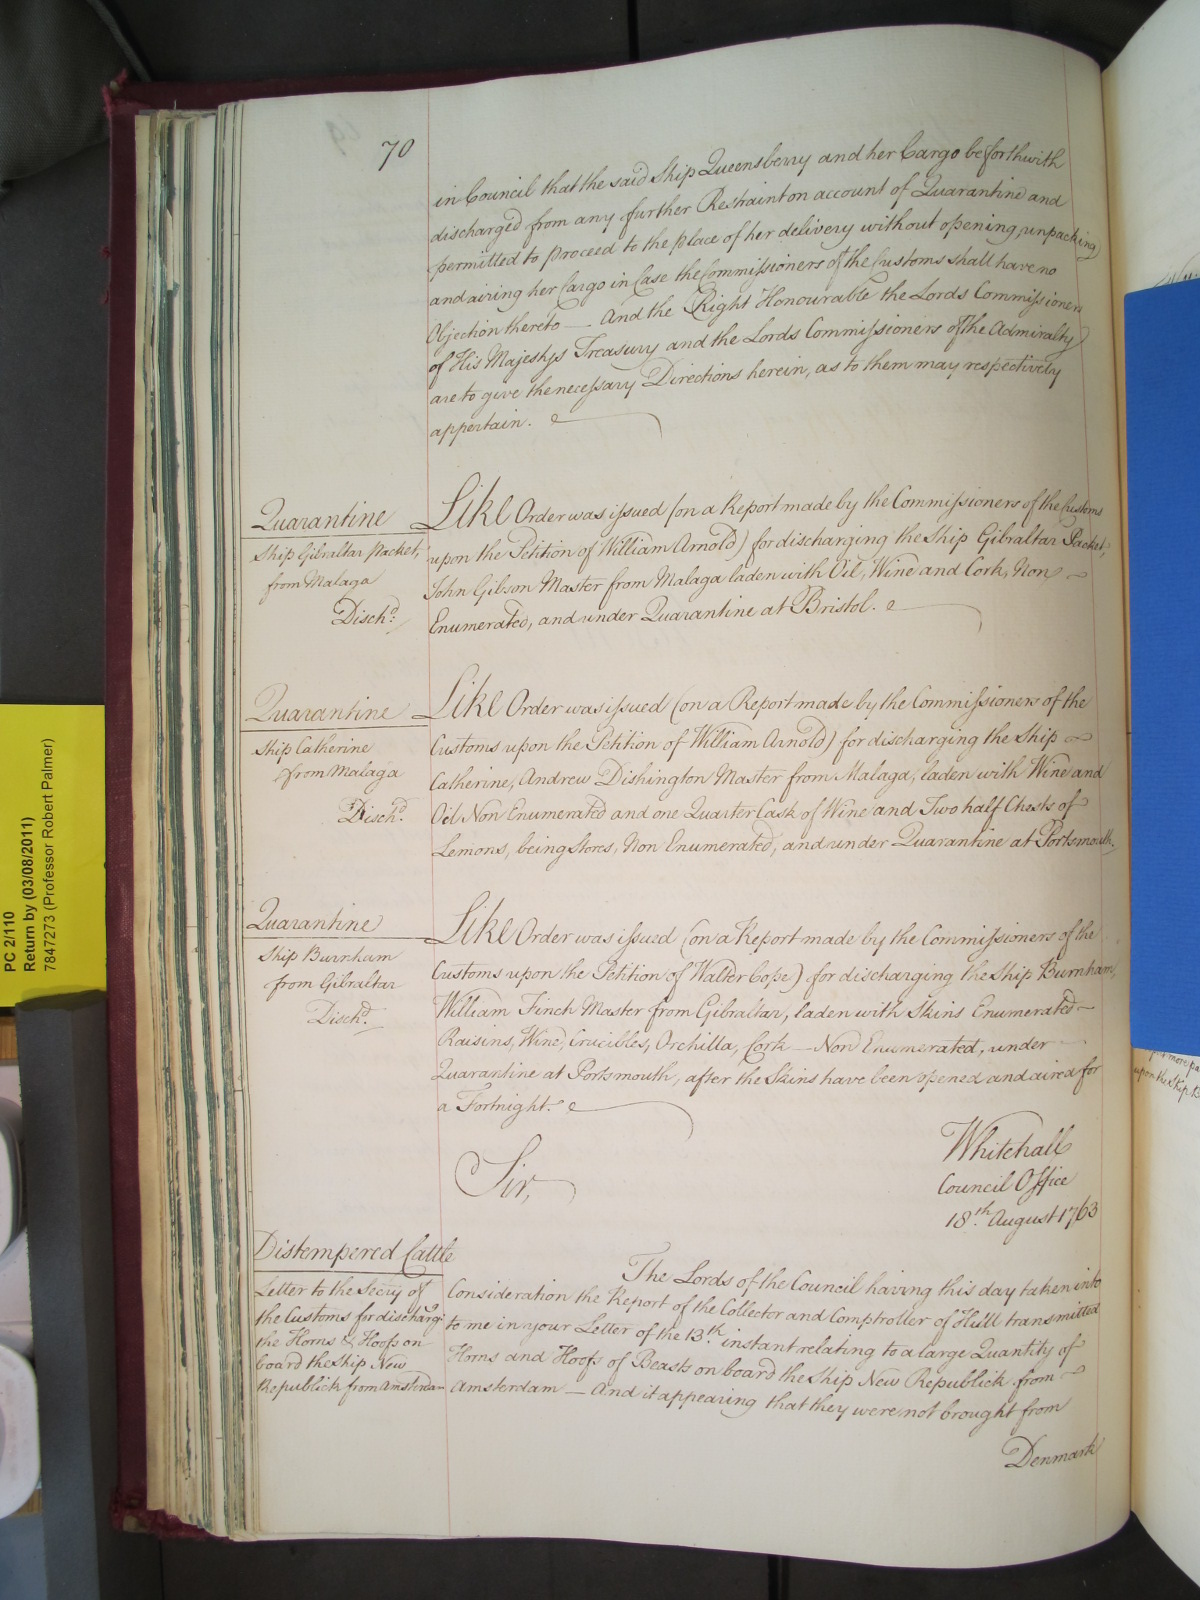 70
in Council that the said Ship Queensberry and her Cargo be forthwith
discharged from any further Restraint on account of Quarantine and
permitted to proceed to the place of her delivery without opening, unpacking
and airing her Cargo in Case the Commissioners of the Customs shall have no
Objection thereto — And the Right Honourable the Lords Commissioners
of His Majestys Treasury and the Lords Commissioners of the Admiralty
are to give the necessary Directions herein, as to them may respectively
appertain.
Quarantine
Ship Gibraltar Packet,
from Malaga
Disch.d
Like Order was issued (on a Report made by the Commissioners of the Customs
upon the Petition of William Arnold) for discharging the Ship Gibraltar Packet,
John Gibson Master from Malaga laden with Oil, Wine and Cork, Non
Enumerated, and under Quarantine at Bristol.
Quarantine
Ship Catherine
from Malaga
Disch.d
Like Order was issued (on a Report made by the Commissioners of the
Customs upon the Petition of William Arnold) for discharging the Ship
Catherine, Andrew Dishington Master from Malaga, laden with Wine and
Oil Non Enumerated and one Quarter Cask of Wine and Two half Chests of
Lemons, being Stores, Non Enumerated, and under Quarantine at Portsmouth.
Quarantine
Ship Burnham
from Gibraltar
Disch.d
Like Order was issued (on a Report made by the Commissioners of the
Customs upon the Petition of Walter Cope) for discharging the Ship Burnham,
William Finch Master from Gibraltar, laden with Skins Enumerated —
Raisins, Wine, Crucibles, Orchilla, Cork — Non Enumerated, under
Quarantine at Portsmouth, after the Skins have been opened and aired for
a Fortnight.
Whitehall
Council Office
18.th August 1763
Sir,
Distempered Cattle
Letter to the Secry of
the Customs for discharg:g
the Horns & Hoofs on
board the Ship New
Republick from Amsterda—
The Lords of the Council having this day taken into
Consideration the Report of the Collector and Comptroller of Hull transmitted
to me in your Letter of the 13.th instant relating to a large Quantity of
Horns and Hoofs of Beasts on board the Ship New Republick from
Amsterdam — And it appearing that they were not brought from
Denmark
PC 2/110
Return by (03/08/2011)
7847273 (Professor Robert Palmer)
upon the Ship